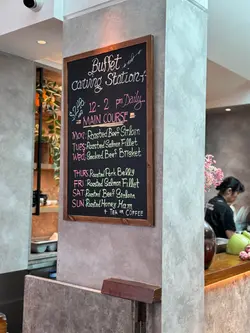 Buffet
Carving Station
12 - 2 pm Daily
MAIN COURSE
MON: Roasted Beef Sirloin
TUES: Roasted Salmon Fillet
WED: Smoked Beef Brisket
THURS: Roasted Pork Belly
FRI: Roasted Salmon Fillet
SAT: Roasted Beef Sirloin
SUN: Roasted Honey Ham
+ TEA or COFFEE